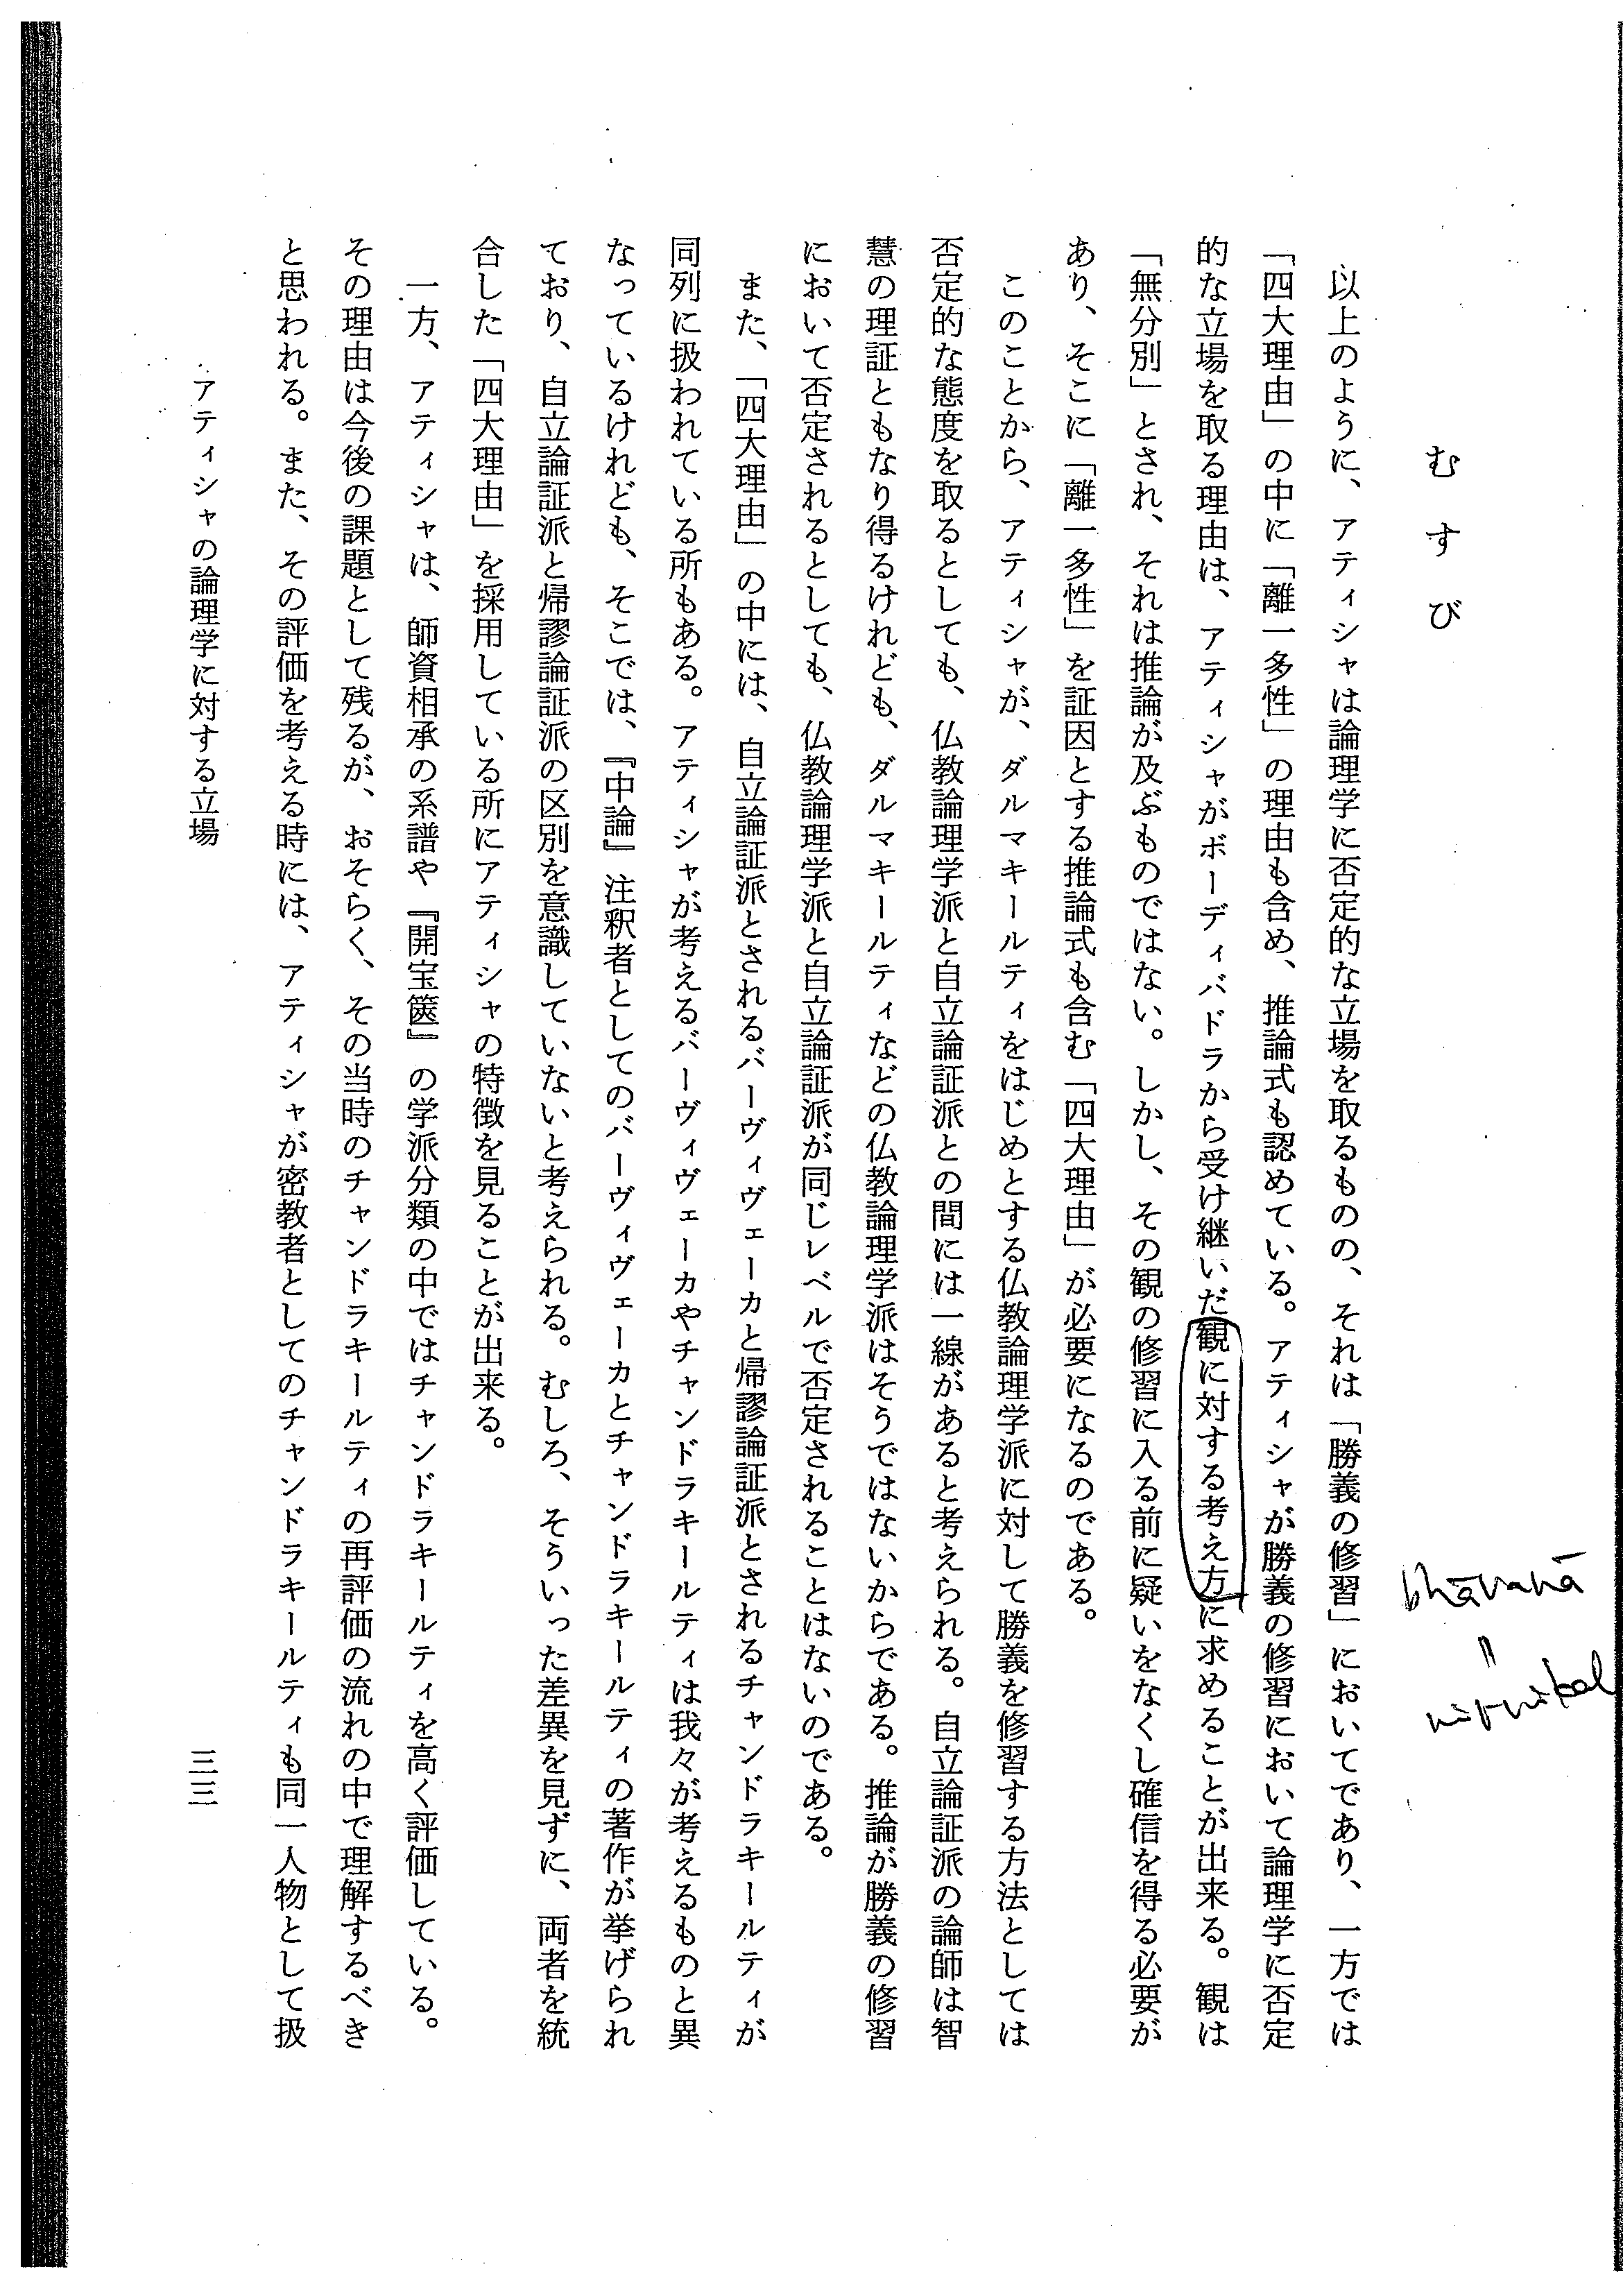 むすび
以上のように、アティシャは論理学に否定的な立場を取るものの、それは「勝義の修習」においてであり、一方では
「四大理由」の中に「離一多性」の理由も含め、推論式も認めている。アティシャが勝義の修習において論理学に否定
的な立場を取る理由は、アティシャがボーディバドラから受け継いだ観に対する考え方に求めることが出来る。観は
「無分別」とされ、それは推論が及ぶものではない。しかし、その観の修習に入る前に疑いをなくし確信を得る必要が
あり、そこに「離一多性」を証因とする推論式も含む「四大理由」が必要になるのである。
このことから、アティシャが、ダルマキールティをはじめとする仏教論理学派に対して勝義を修習する方法としては
否定的な態度を取るとしても、仏教論理学派と自立論証派との間には一線があると考えられる。自立論証派の論師は智
慧の理証ともなり得るけれども、ダルマキールティなどの仏教論理学派はそうではないからである。推論が勝義の修習
において否定されるとしても、仏教論理学派と自立論証派が同じレベルで否定されることはないのである。
また、「四大理由」の中には、自立論証派とされるバーヴィヴェーカと帰謬論証派とされるチャンドラキールティが
同列に扱われている所もある。アティシャが考えるバーヴィヴェーカやチャンドラキールティは我々が考えるものと異
なっているけれども、そこでは、『中論』注釈者としてのバーヴィヴェーカとチャンドラキールティの著作が挙げられ
ており、自立論証派と帰謬論証派の区別を意識していないと考えられる。むしろ、そういった差異を見ずに、両者を統
合した「四大理由」を採用している所にアティシャの特徴を見ることが出来る。
一方、アティシャは、師資相承の系譜や『開宝篋』の学派分類の中ではチャンドラキールティを高く評価している。
その理由は今後の課題として残るが、おそらく、その当時のチャンドラキールティの再評価の流れの中で理解するべき
と思われる。また、その評価を考える時には、アティシャが密教者としてのチャンドラキールティも同一人物として扱
アティシャの論理学に対する立場
三三
bhāvanā
=
nirvikal